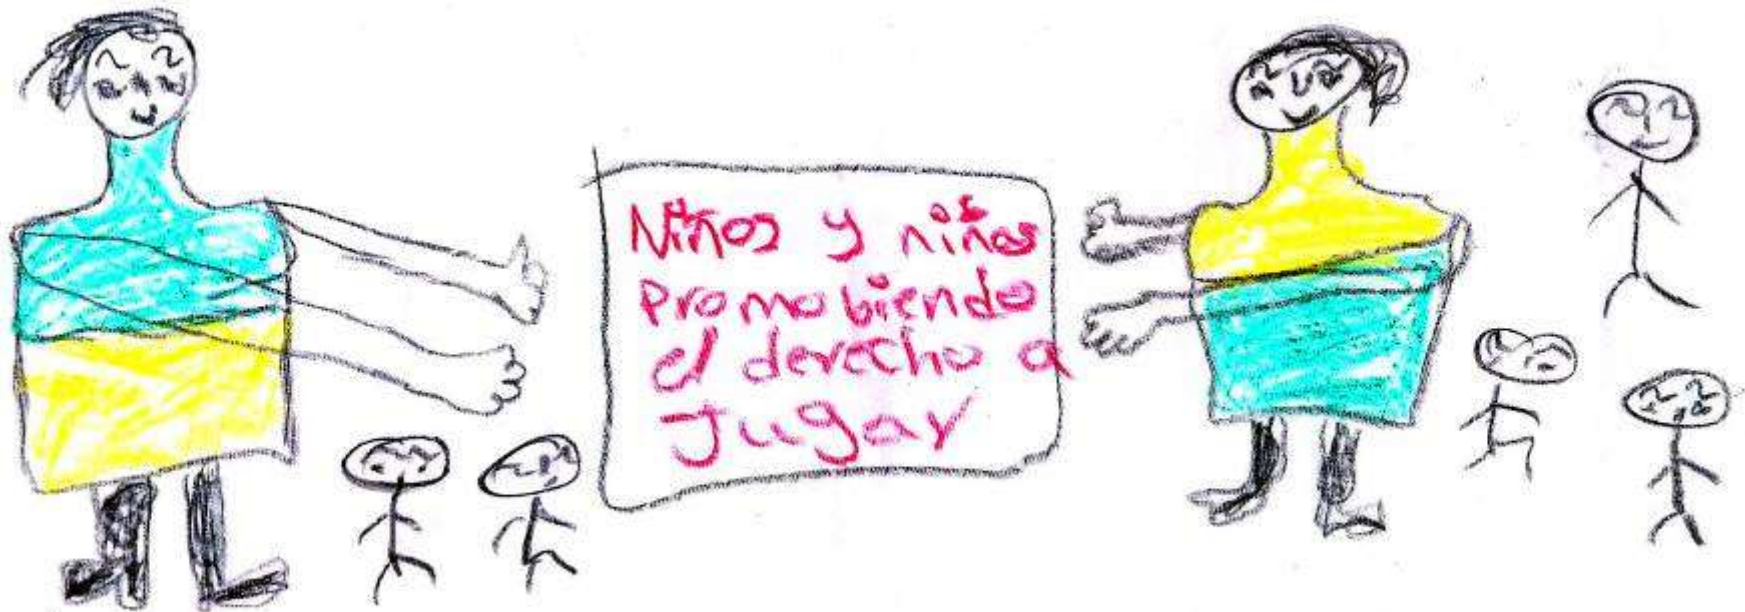 Niños y niñas
Promobiendo
el derecho a
Jugar